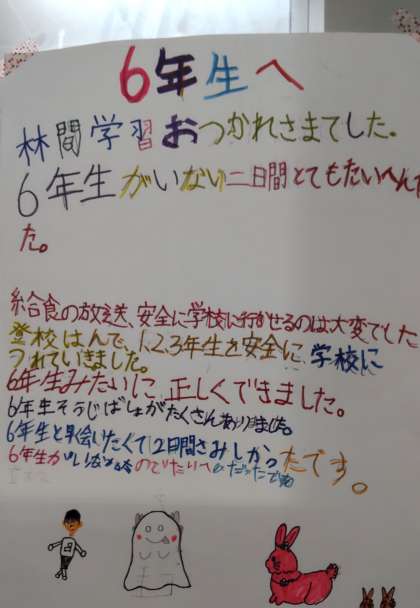 6年生へ
林間学習おつかれさまでした。
6年生がいない二日間とてもたいへんだ
た。
給食の放送、安全に学校に行かせるのは大変でした
登校はんで、1.2.3年生を安全に、学校に
つれていきました。
6年生みたいに、正しくできました。
6年生そうじばしょがたくさんありました。
6年生と早く会いたくて2日間さみしかったです。
6年生がいいなかったのでたいへんだったです